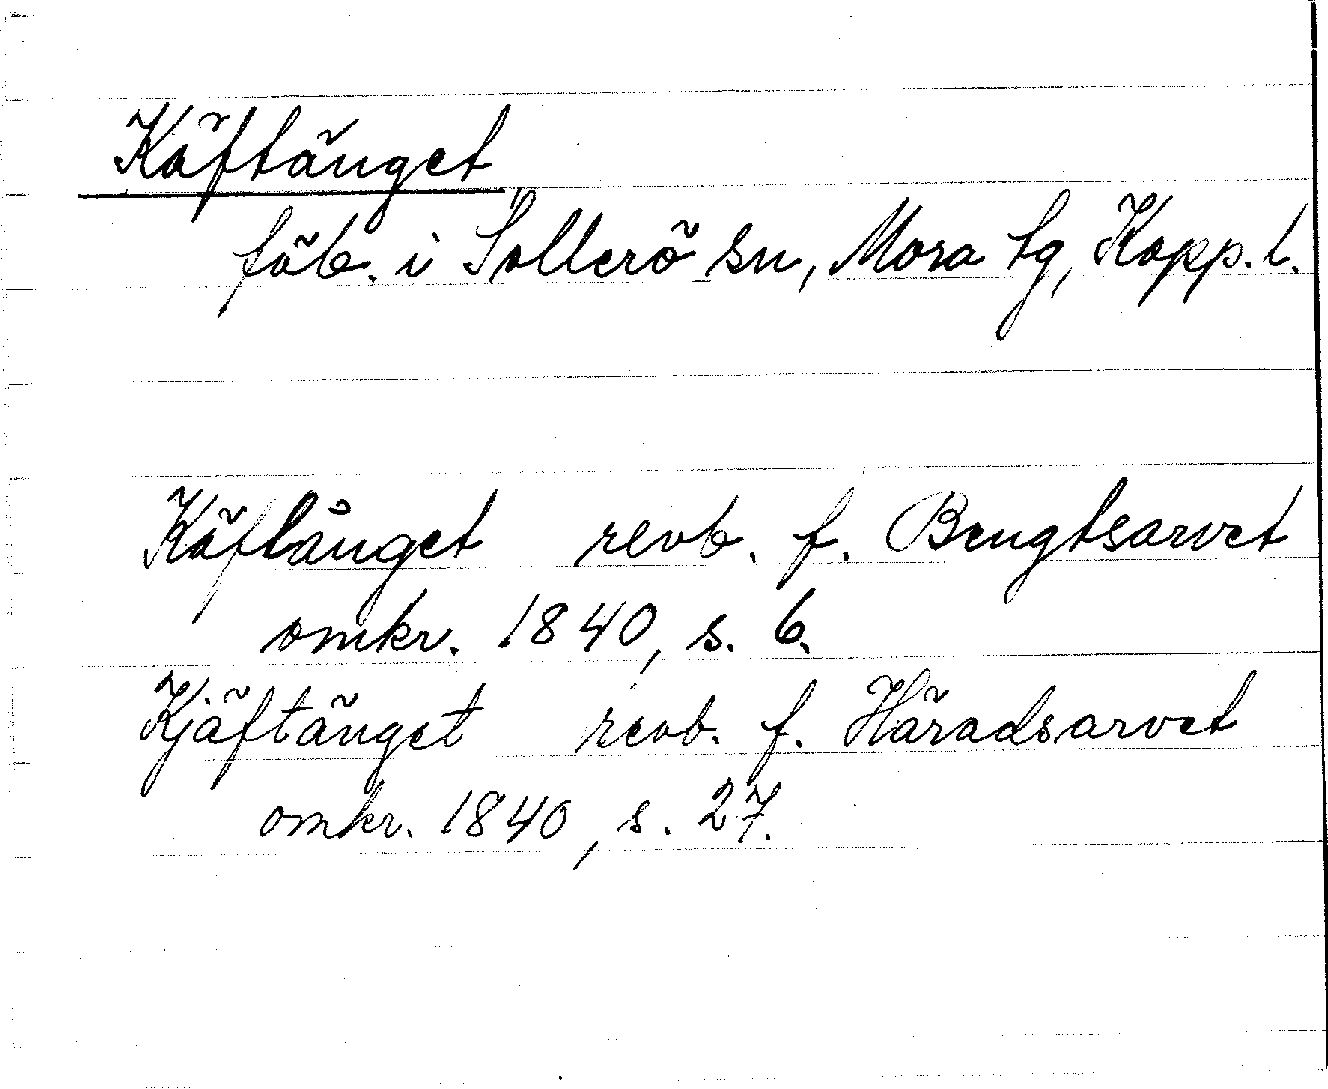 Käftänget
fäb. i Sollerö sn, Mora tg, Kopp. l.
Käflånget revb. f. Bengtsarvet
omkr. 1840, s. 6.
Kjäftänget revb. f. Häradsarvet
omkr. 1840, s. 27.